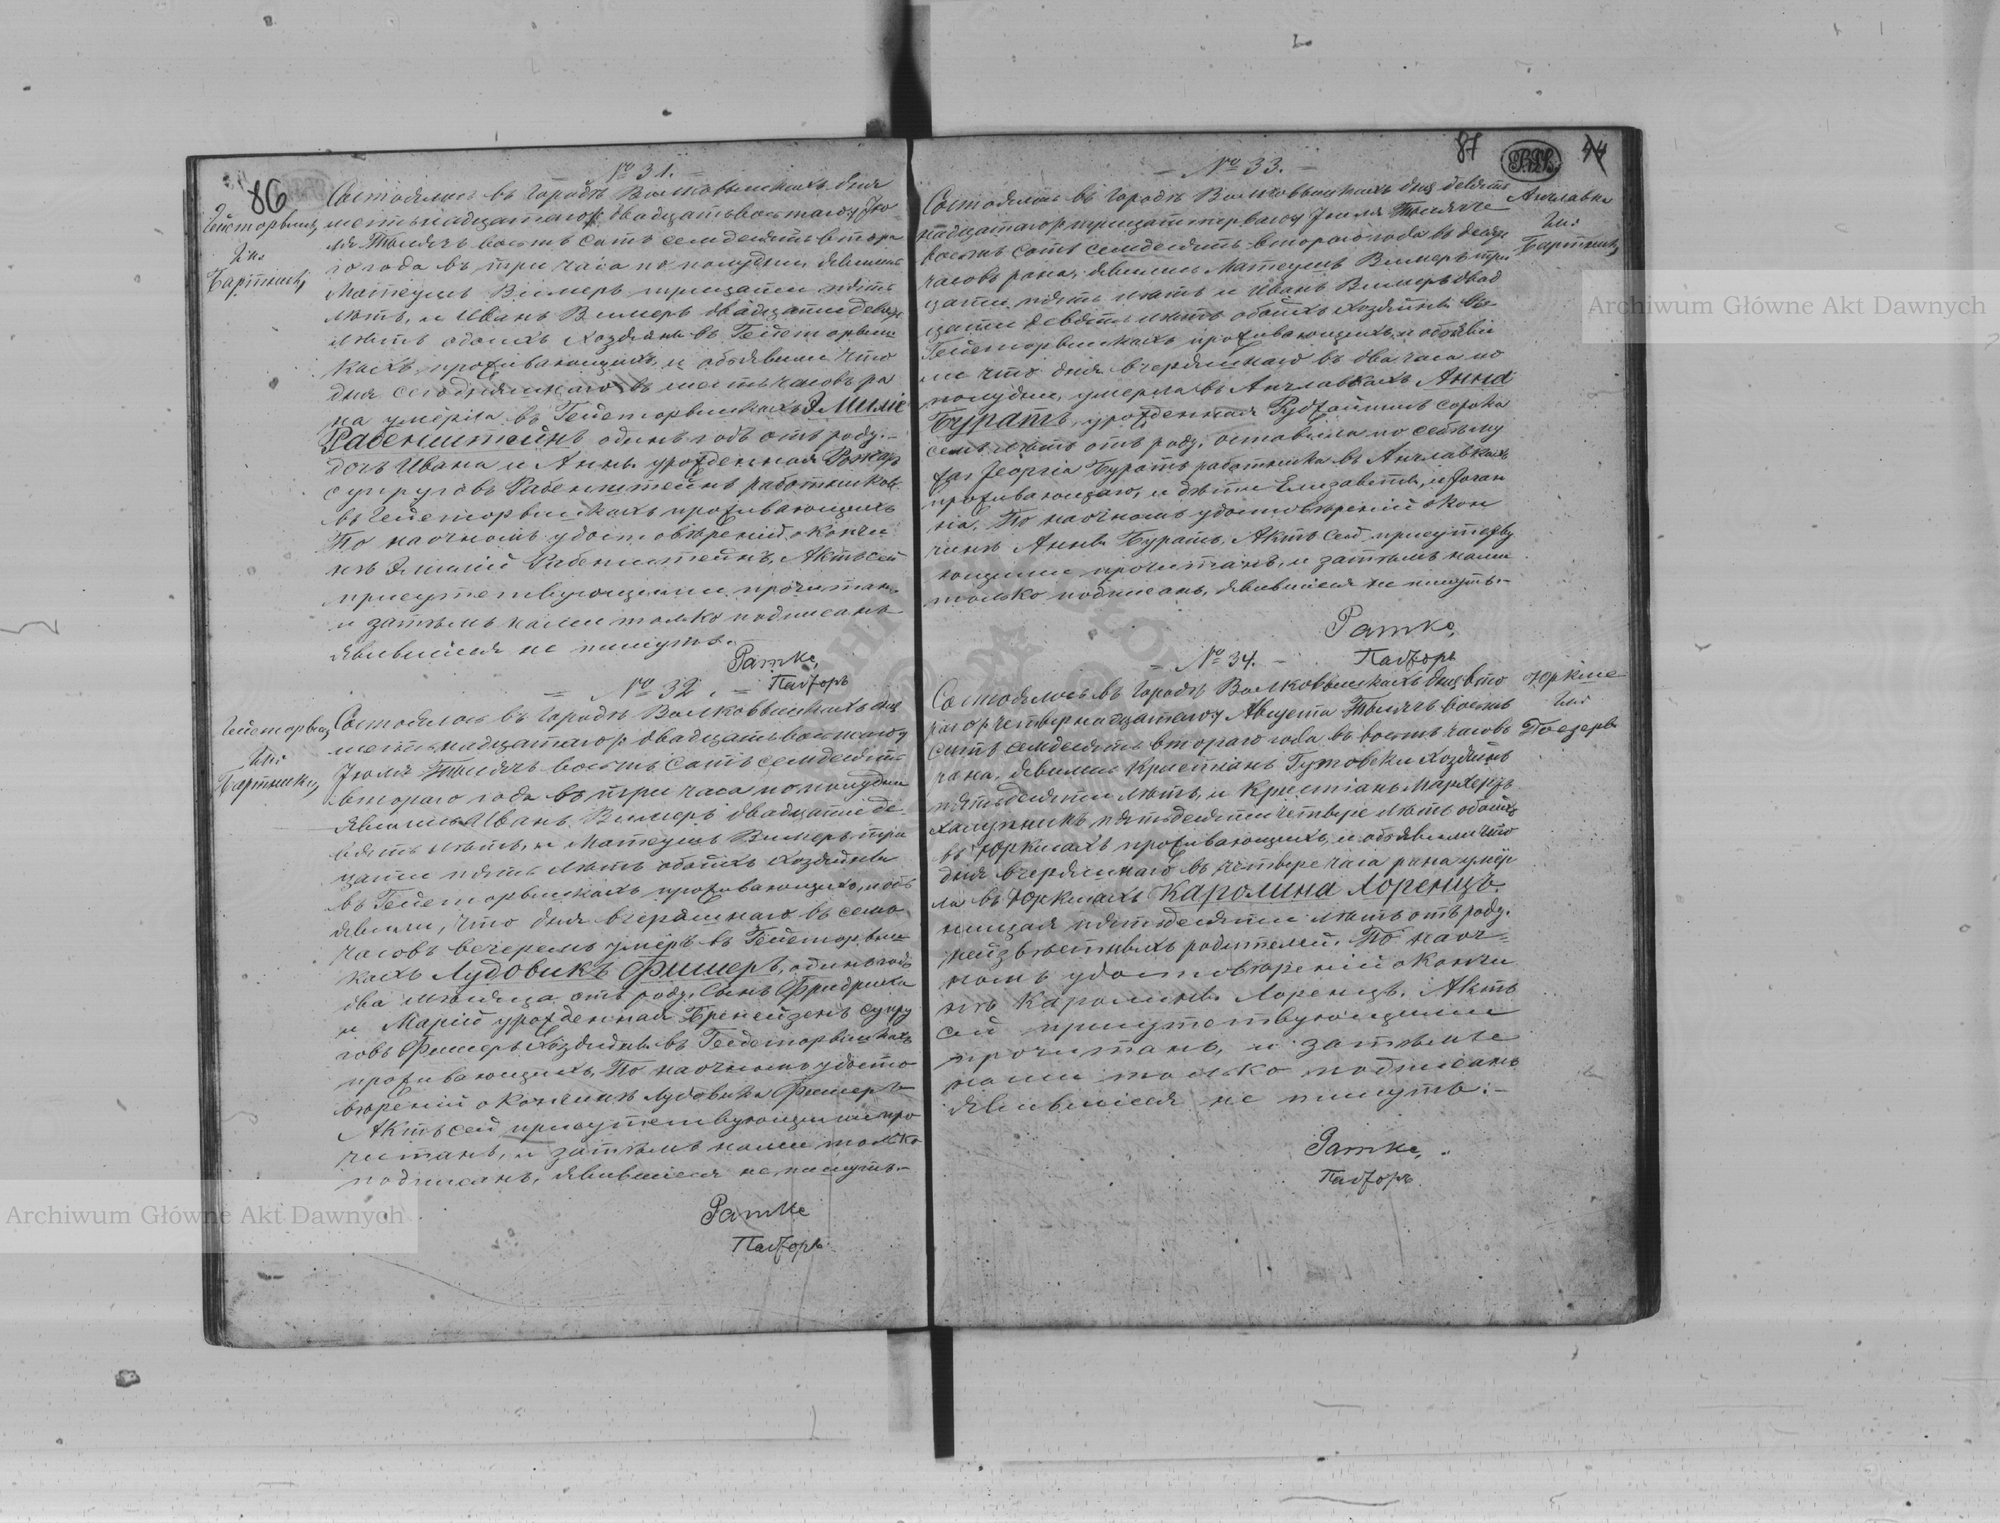 86
№ 31.
Гейсторвишки
Им:
Бартники
Состоялось въ Городѣ Волковышкахъ дня
шестьнадцатаго/двадцатьвосьмаго Ію
ля Тысяча восемь сотъ семдесять втора
го года въ три часа по полудни, явились
Матеушъ Вимеръ тридцати пять
лѣтъ, и Иванъ Вимеръ двадцати девять
лѣтъ обоихъ хозяины въ Гейсторвиш
кахъ проживающихъ, и объявили что
дня сегодняшнаго въ шесть часовъ ра
на умерла въ Гейсторвишкахъ Эмилія
Рабенштейнъ одинъ годъ отъ роду.
дочь Ивана и Анны урожденная
супруговъ Рабенштейнъ работниковъ
въ Гейсторвишкахъ проживающихъ
По наочномъ удостовѣреніи о кончи
нѣ Эмиліи Рабенштейнъ, Актъ сей
присутствующими прочитанъ
и затѣмъ нами только подписанъ
явившіися не пишутъ.
Ратке,
Пасторъ
№ 32.
Гейсторвиш
Им:
Бартники
Состоялось въ Городѣ Волковышкахъ дня
шестьнадцатаго/двадцатьвосьмаго
Іюля Тысяча восемь сотъ семдесять
втораго года въ три часа по полудни
явились Иванъ Вимеръ двадцати де-
вять лѣтъ, и Матеушъ Вимеръ трид
цати пять лѣтъ обоихъ хозяины
въ Гейсторвишкахъ проживающихъ, и объ
явили, что дня вчерашнаго въ семь
часовъ вечеремъ умеръ въ Гейсторвиш-
кахъ Лудовикъ Фишеръ, одинъ годъ
два мѣсяца отъ роду, сынъ Фридриха
и Маріи урожденная супру
говъ Фишеръ хозяины въ Гейсторвишкахъ
проживающихъ. По наочномъ удосто
вѣреніи о кончинѣ Лудовика Фишеръ
Актъ сей присутствующими про
читанъ, и затѣмъ нами только
подписанъ, явившіися не пишутъ.
Ратке
Пасторъ
87
44
№ 33.
Состоялось въ Городѣ Волковышкахъ дня девять
надцатаго/тридцатьперваго Іюля Тысяча
восемь сотъ семдесять втораго года въ десять
часовъ рана, явились Матеушъ Вимеръ трид
цати пять лѣтъ и Иванъ Вимеръ двад
цати девять лѣтъ обоихъ хозяины въ
Гейсторвишкахъ проживающихъ, и объяви
ли что дня вчерашнаго въ два часа по
полудни, умерла въ Англавкахъ Анна
Буратъ, урожденная сорока
семь лѣтъ отъ роду, оставила по себѣ му
жа Георгія Буратъ работника въ Англавкахъ
проживающаго, и дѣти Елизавета, и Іоган
на. По наочномъ удостовѣреніи о кон
чинѣ Анны Буратъ, Актъ сей присутству
ющими прочитанъ, и затѣмъ нами
только подписанъ, явившіися не пишутъ.
Англавки
Им:
Бартники
Ратке,
Пасторъ
№ 34.
Состоялось въ Городѣ Волковышкахъ дня вто
раго/четвернадцатаго Августа Тысяча восемь
сотъ семдесять втораго года въ восемь часовъ
рана, явились Кристіанъ Гутовски хозяинъ
пятьдесяти лѣтъ, и Кристіанъ
халупникъ пятьдесяти четвере лѣтъ обоихъ
въ Юркшахъ проживающихъ, и объявили что
дня вчерашнаго въ четвере часа рана умер
ла въ Юркшахъ Каролина Лоренцъ
нищая пятьдесяти лѣтъ отъ роду,
неизвѣстныхъ родителей. По наоч-
номъ удостовѣреніи о кончи
нѣ Каролины Лоренцъ, Актъ
сей присутствующими
прочитанъ, и затѣмъ
нами только подписанъ
явившіися не пишутъ.
Юркше
Им:
Поезеры
Ратке,
Пасторъ
Archiwum Główne Akt Dawnych
Archiwum Główne Akt Dawnych